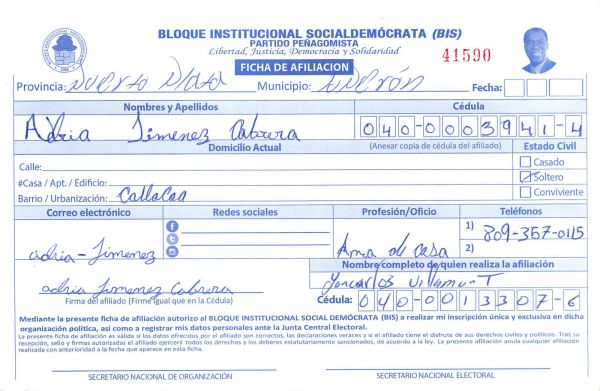 BLOQUE INSTITUCIONAL SOCIALDEMÓCRATA (BIS)
PARTIDO PEÑAGOMISTA
Libertad, Justicia, Democracia y Solidaridad
41590
FICHA DE AFILIACION
Provincia: Puerto Plata Municipio: Fecha:
Nombres y Apellidos Cédula
Adria Jimenez Cabrera 040-0003941-4
Domicilio Actual (Anexar copia de cédula del afiliado) Estado Civil
Calle: Casado
#Casa / Apt. / Edificio: Soltero
Barrio / Urbanización: Conviviente
Correo electrónico Redes sociales Profesión/Oficio Teléfonos
1) 809-357-0115
adria-Jimenez Ama de casa 2)
Nombre completo de quien realiza la afiliación
adria Jimenez Cabrera
Firma del afiliado (Firme igual que en la Cédula) Cédula: 040-0013307-6
Mediante la presente ficha de afiliación autorizo al BLOQUE INSTITUCIONAL SOCIAL DEMÓCRATA (BIS) a realizar mi inscripción única y exclusiva en dicha
organización política, así como a registrar mis datos personales ante la Junta Central Electoral.
La presente ficha de afiliación es válida si los datos ofrecidos por el afiliado son correctos, las declaraciones veraces y si el afiliado tiene el disfrute de sus derechos civiles y políticos. Tras su
recepción, sello y firmas autorizadas el afiliado ejercerá todos los derechos y los deberes estatutariamente sancionados, de acuerdo a la ley electoral. La presente afiliación anula cualquier afiliación
realizada con anterioridad a la fecha que aparece en esta ficha.
SECRETARIO NACIONAL DE ORGANIZACIÓN SECRETARIO NACIONAL ELECTORAL